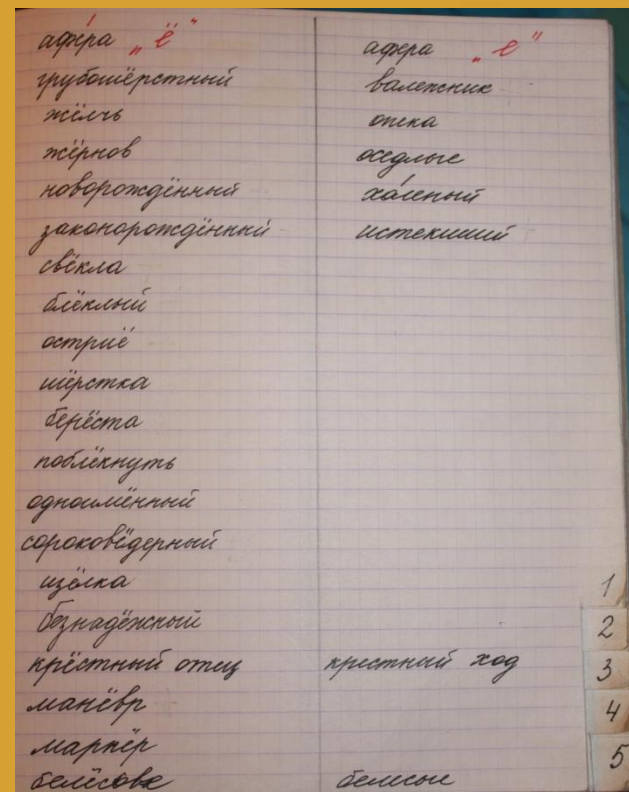 афера „ё"
грубошёрстный
жёлчь
жёрнов
новорождённый
законорождённый
свёкла
блёклый
остриё
шёрстка
берёста
поблёкнуть
одноимённый
сороковёдерный
щёлка
безнадёжный
крёстный отец
манёвр
маркёр
белёсов
афера „е"
валежник
опека
оседлые
холеный
истекший
крестный ход
белесые
1
2
3
4
5